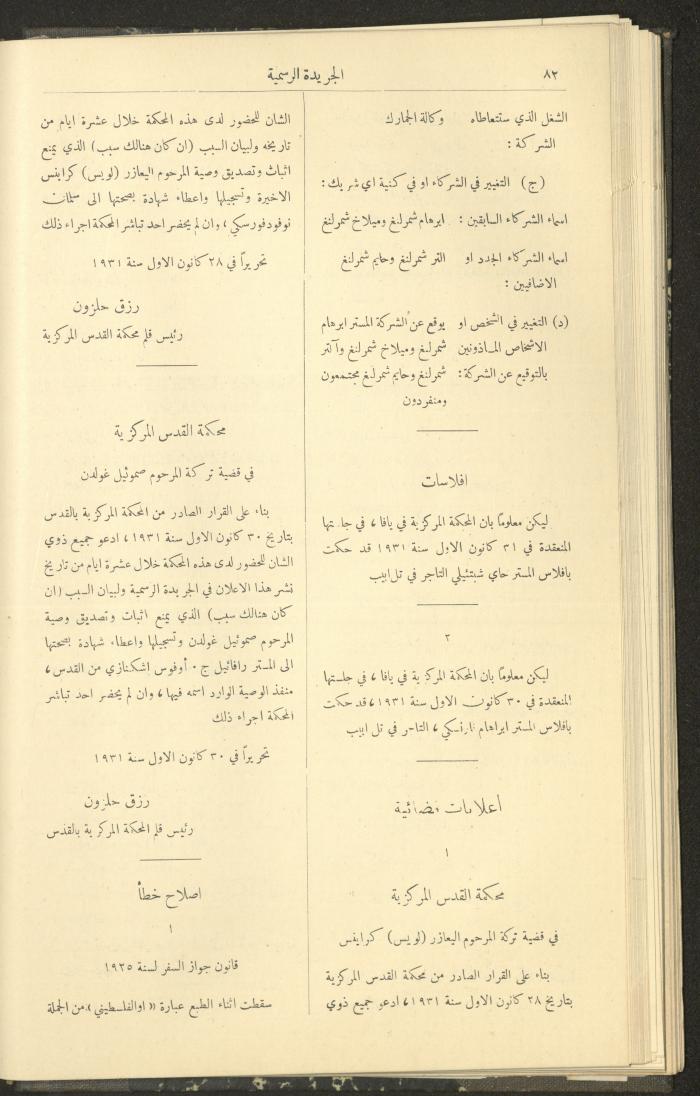 ٨٢
الجريدة الرسمية
الشغل الذي ستتعاطاه وكالة الجمارك
الشركة :
(ج) التغيير في الشركاء او في كنية اي شريك :
اسماء الشركاء السابقين : ابرهام شمرلنغ وميلاخ شمرلنغ
اسماء الشركاء الجدد او التر شمرلنغ وحايم شمرلنغ
الاضافيين :
(د) التغيير في الشخص او يوقع عن الشركة المستر ابرهام
الاشخاص المأذونين شمرلنغ وميلاخ شمرلنغ وآلتر
بالتوقيع عن الشركة : شمرلنغ وحايم شمرلنغ مجتمعون
ومنفردون
افلاسات
ليكن معلوماً بان المحكمة المركزية في يافا ، في جلستها
المنعقدة في ٣١ كانون الاول سنة ١٩٣١ قد حكمت
بافلاس المستر حاي شبتئيلي التاجر في تل ابيب
٢
ليكن معلوماً بان المحكمة المركزية في يافا ، في جلستها
المنعقدة في ٣٠ كانون الاول سنة ١٩٣١ ، قد حكمت
بافلاس المستر ابراهام ، التاجر في تل ابيب
أعلانات قضائية
١
محكمة القدس المركزية
في قضية تركة المرحوم اليعازر (لويس) كراينس
بناء على القرار الصادر من محكمة القدس المركزية
بتاريخ ٢٨ كانون الاول سنة ١٩٣١ ، ادعو جميع ذوي
الشان للحضور لدى هذه المحكمة خلال عشرة ايام من
تاريخه ولبيان السبب (ان كان هنالك سبب) الذي يمنع
اثبات وتصديق وصية المرحوم اليعازر (لويس) كراينس
الاخيرة وتسجيلها واعطاء شهادة بصحتها الى سلمان
نوفودفورسكي ، وان لم يحضر احد تباشر المحكمة اجراء ذلك
تحريراً في ٢٨ كانون الاول سنة ١٩٣١
رزق حلزون
رئيس قلم محكمة القدس المركزية
محكمة القدس المركزية
في قضية تركة المرحوم صموئيل غولدن
بناء على القرار الصادر من المحكمة المركزية بالقدس
بتاريخ ٣٠ كانون الاول سنة ١٩٣١ ، ادعو جميع ذوي
الشان للحضور لدى هذه المحكمة خلال عشرة ايام من تاريخ
نشر هذا الاعلان في الجريدة الرسمية ولبيان السبب (ان
كان هنالك سبب) الذي يمنع اثبات وتصديق وصية
المرحوم صموئيل غولدن وتسجيلها واعطاء شهادة بصحتها
الى المستر رافائيل ج . أوفوس اشكنازي من القدس ،
منفذ الوصية الوارد اسمه فيها ، وان لم يحضر احد تباشر
المحكمة اجراء ذلك
تحريراً في ٣٠ كانون الاول سنة ١٩٣١
رزق حلزون
رئيس قلم المحكمة المركزية بالقدس
اصلاح خطأ
١
قانون جواز السفر لسنة ١٩٢٥
سقطت اثناء الطبع عبارة « اوالفلسطيني » من الجملة